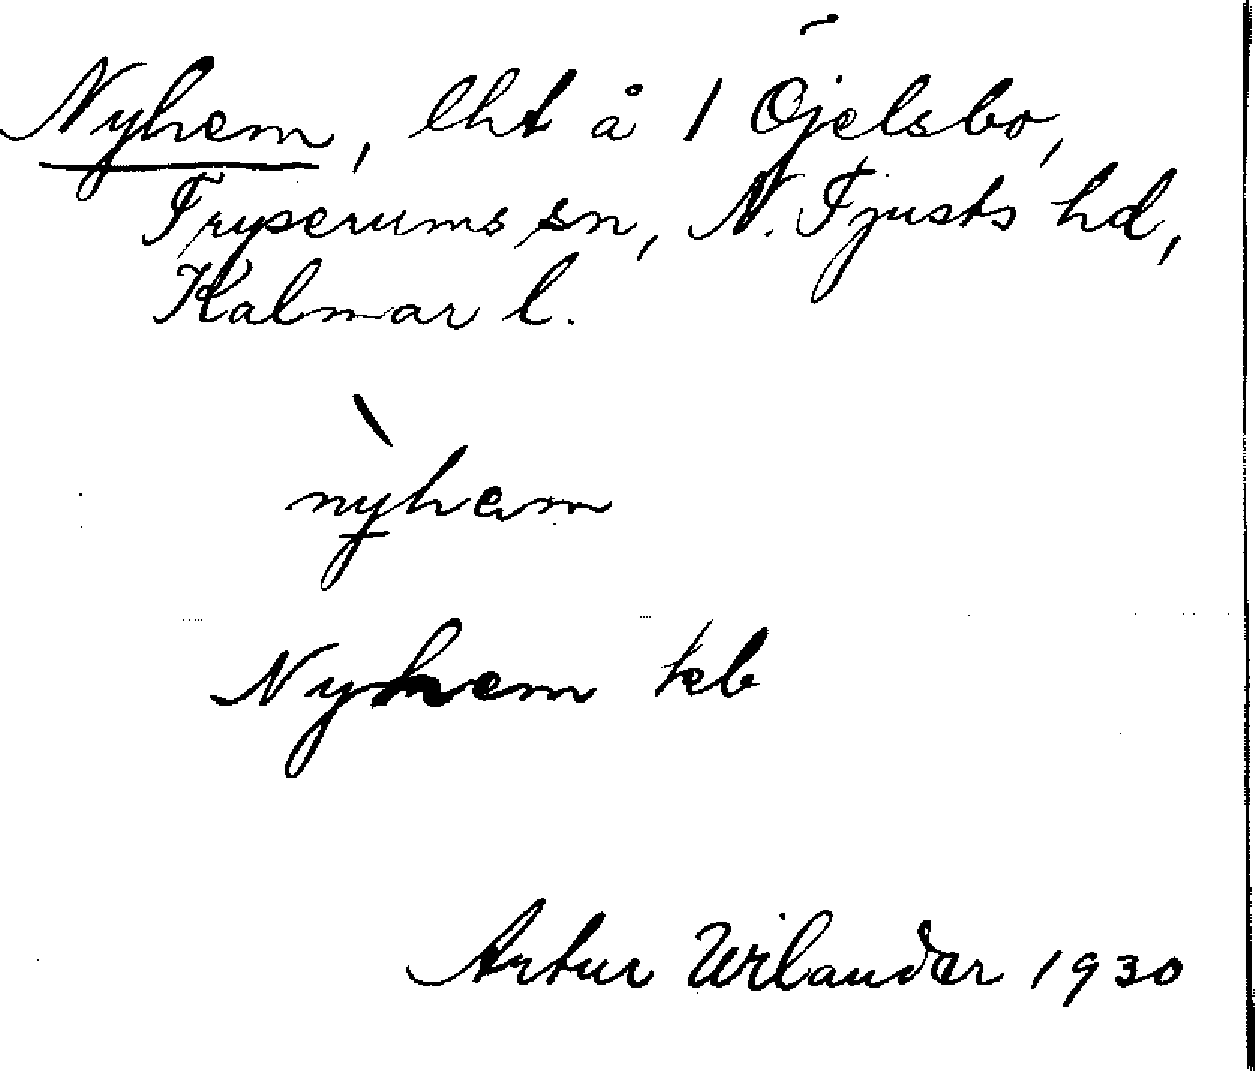 Nyhem, lht å 1 Öjelsbo,
Tryserums sn, N. Tjusts hd,
Kalmar l.
nỳhem
Nyhem kb
Artur Wilander 1930